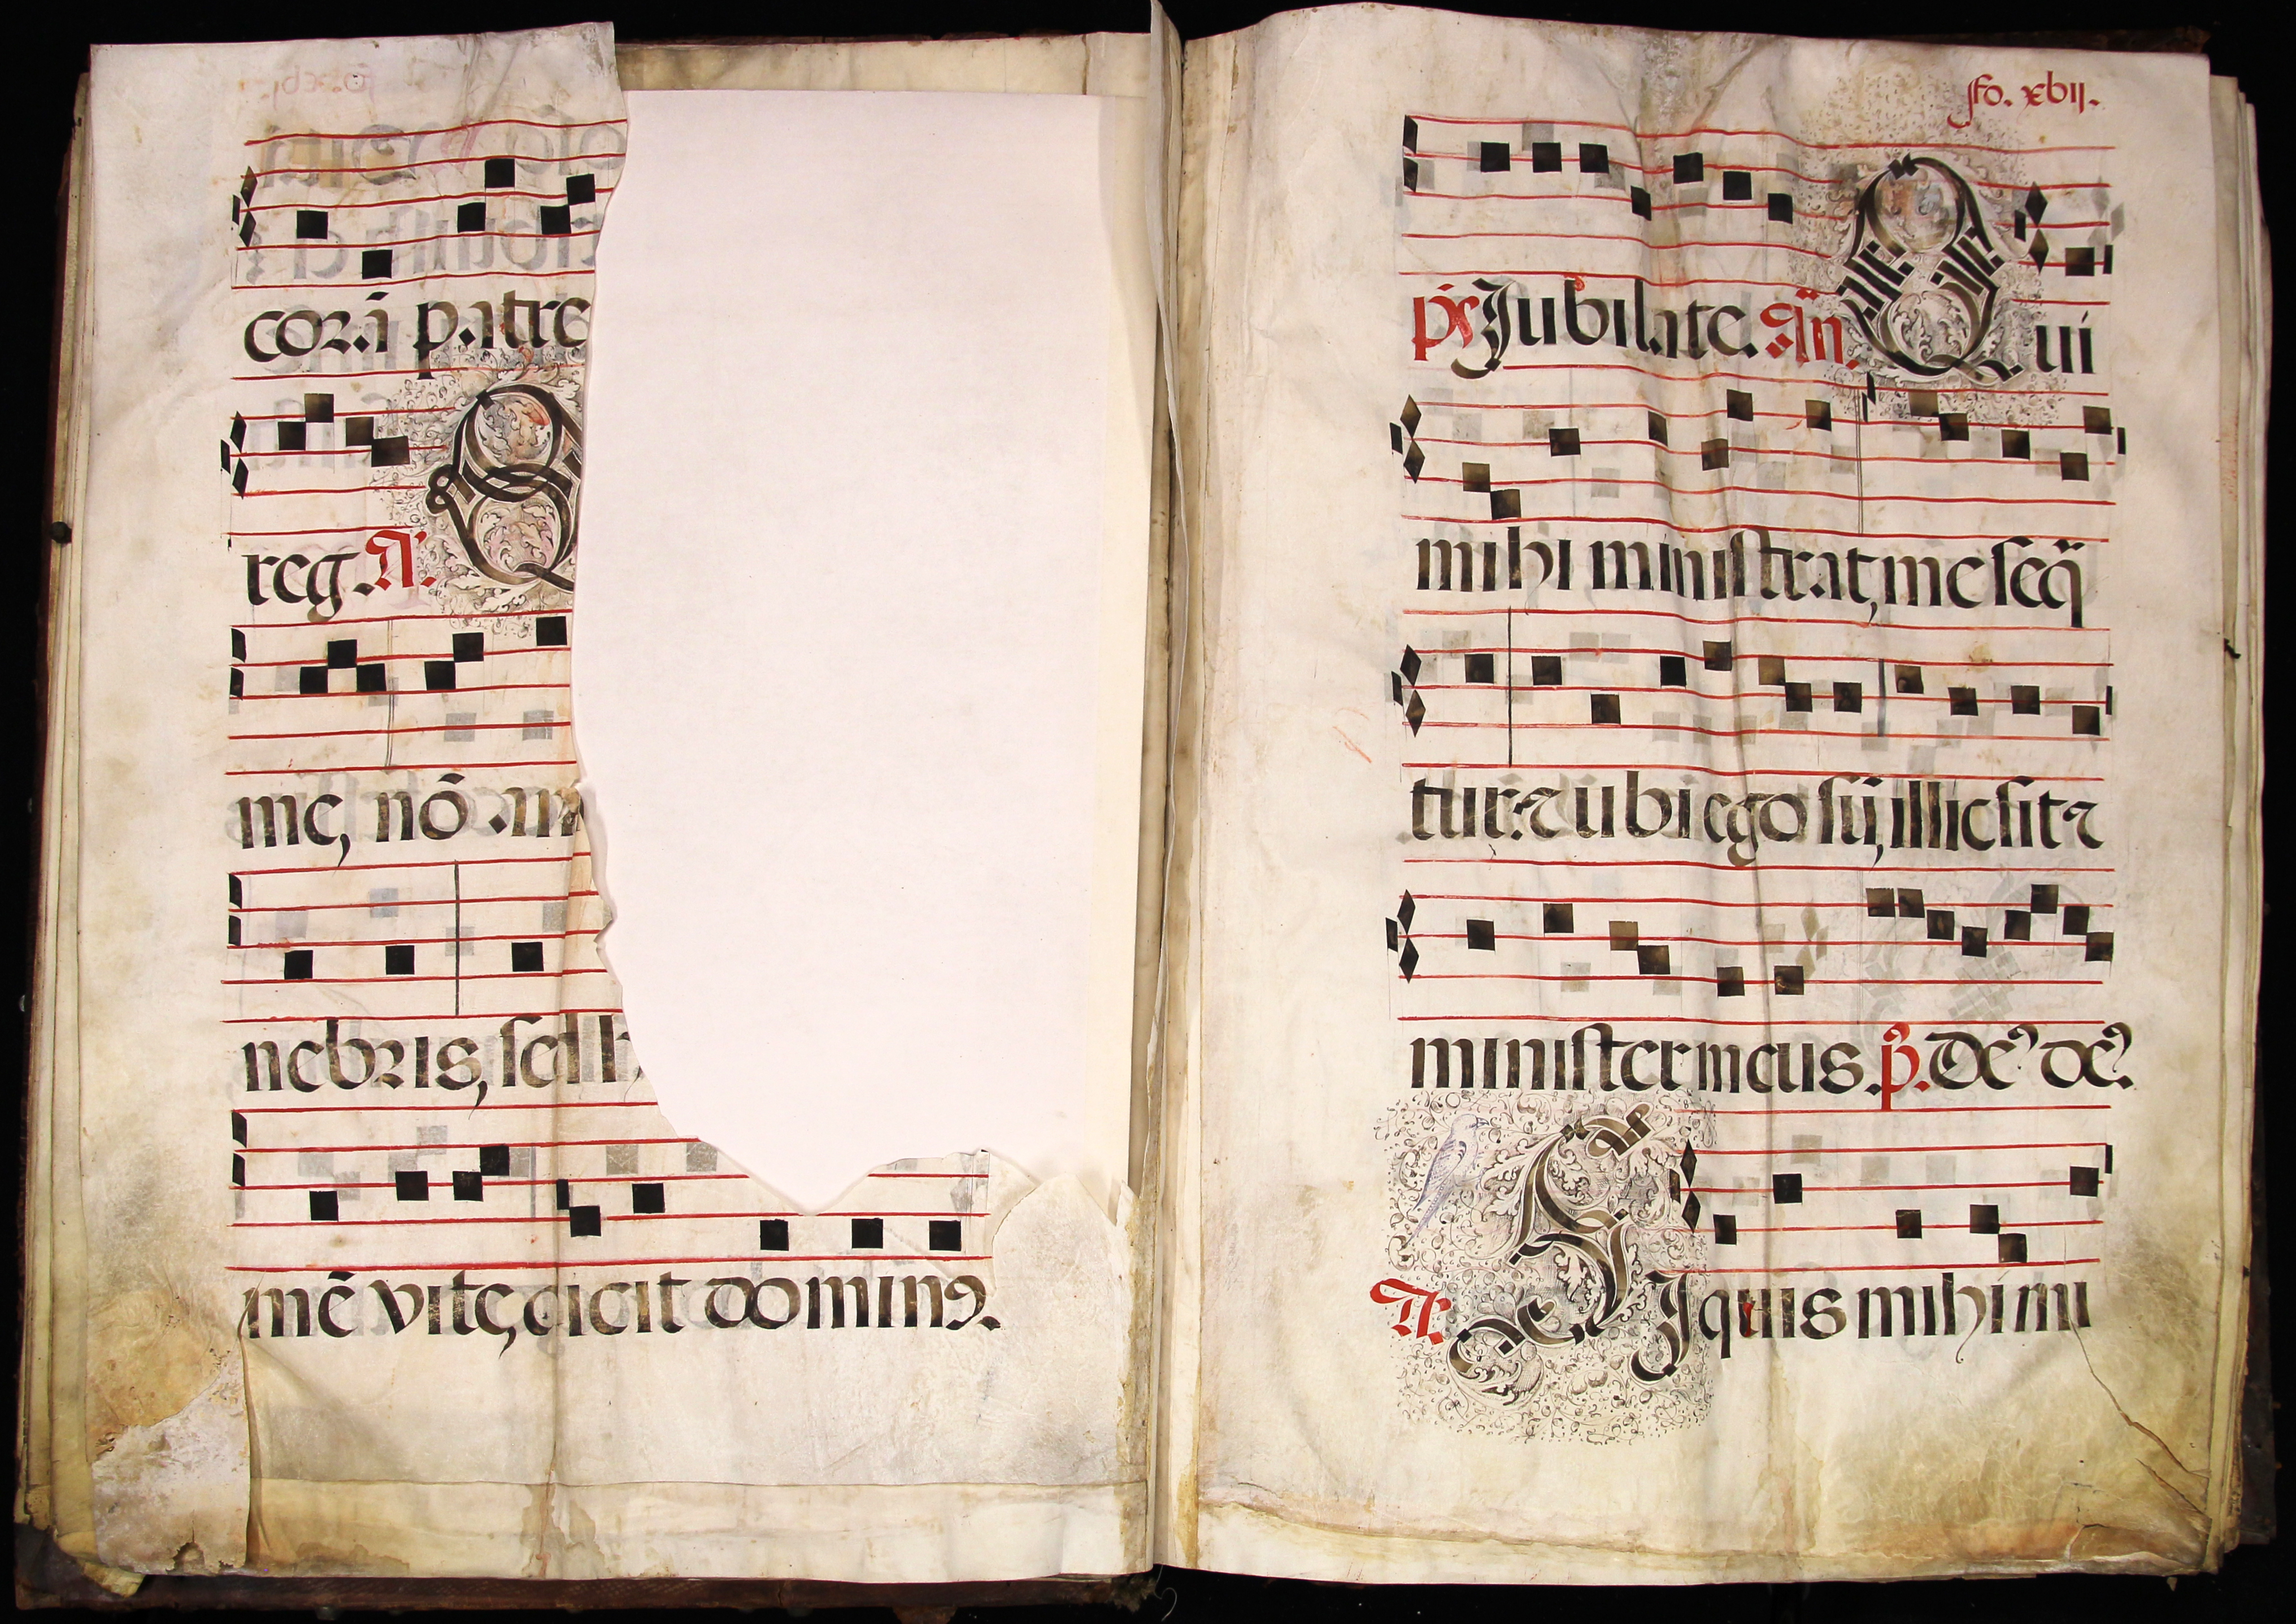 corā patre
reg. A.
Q
me, nō am
nebris, sed h
mē vite, dicit dominꝰ.
fo. xbij.
ps Jubilate. An. Qui
mihi ministrat, me seq̄
tur: ⁊ ubi ego sū, illic sit ⁊
minister meus. p̄. Deꝰ deꝰ.
A. SJ quis mihi mi